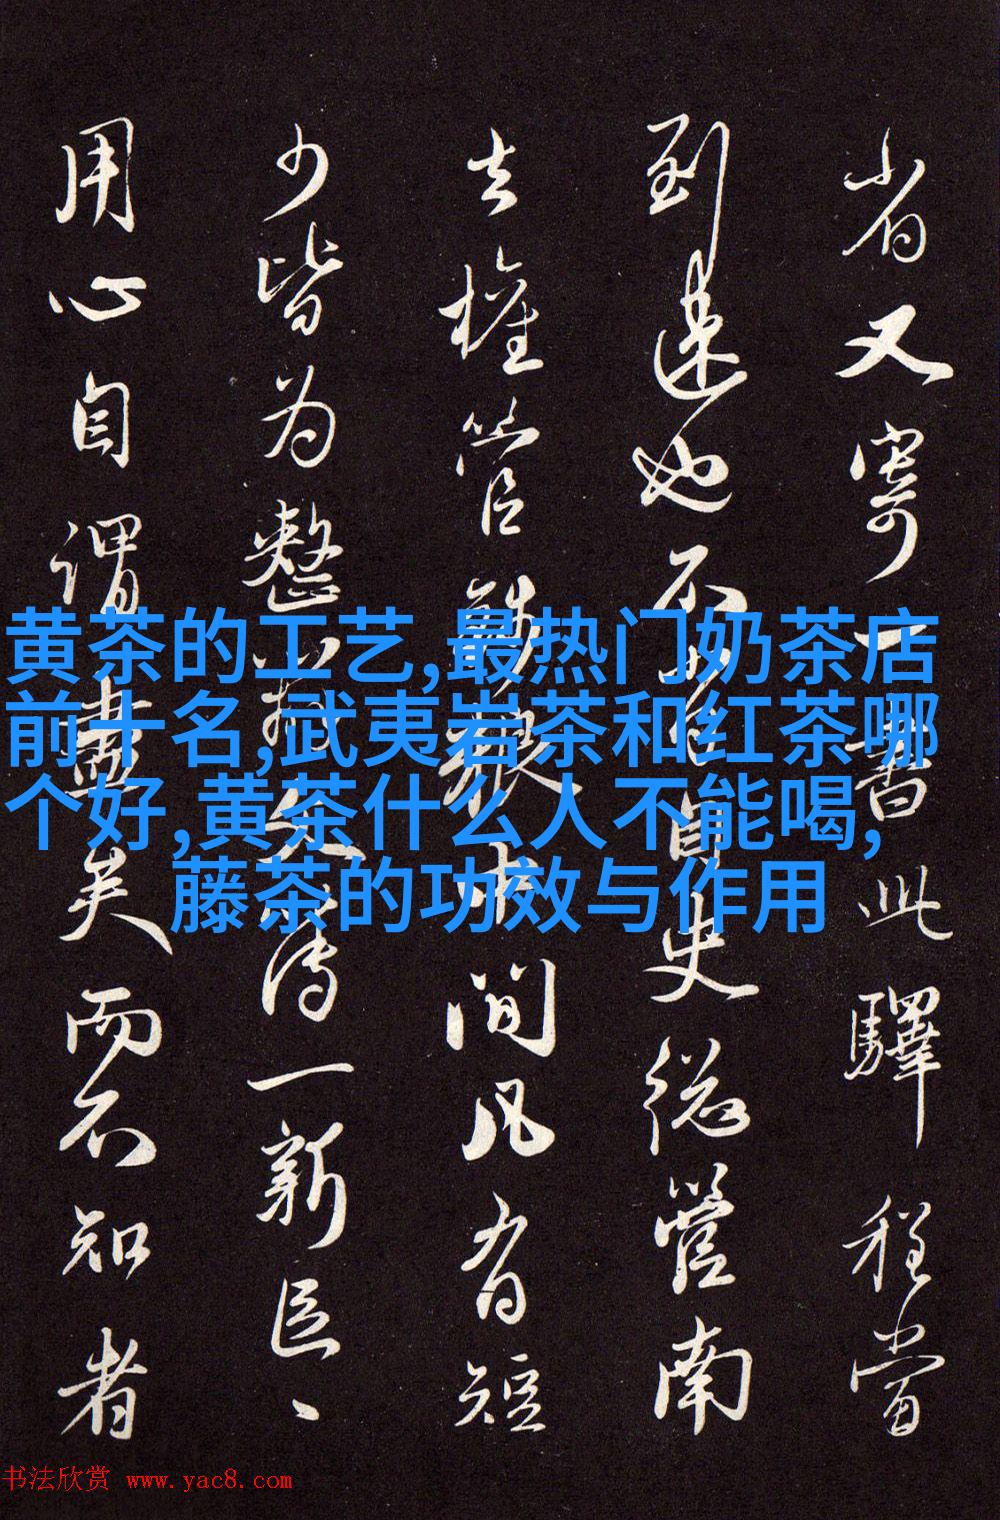 省又寄一書此驛程當
到遠也不
自史總管南
去權管
中間凡有短
少皆为整
文
一新區、
用心自謂盡矣而不知者
黄茶的工艺,最热门奶茶店
前十名,武夷岩茶和红茶哪
个好,黄茶什么人不能喝,
藤茶的功效与作用
书法欣赏 www.yac8.com